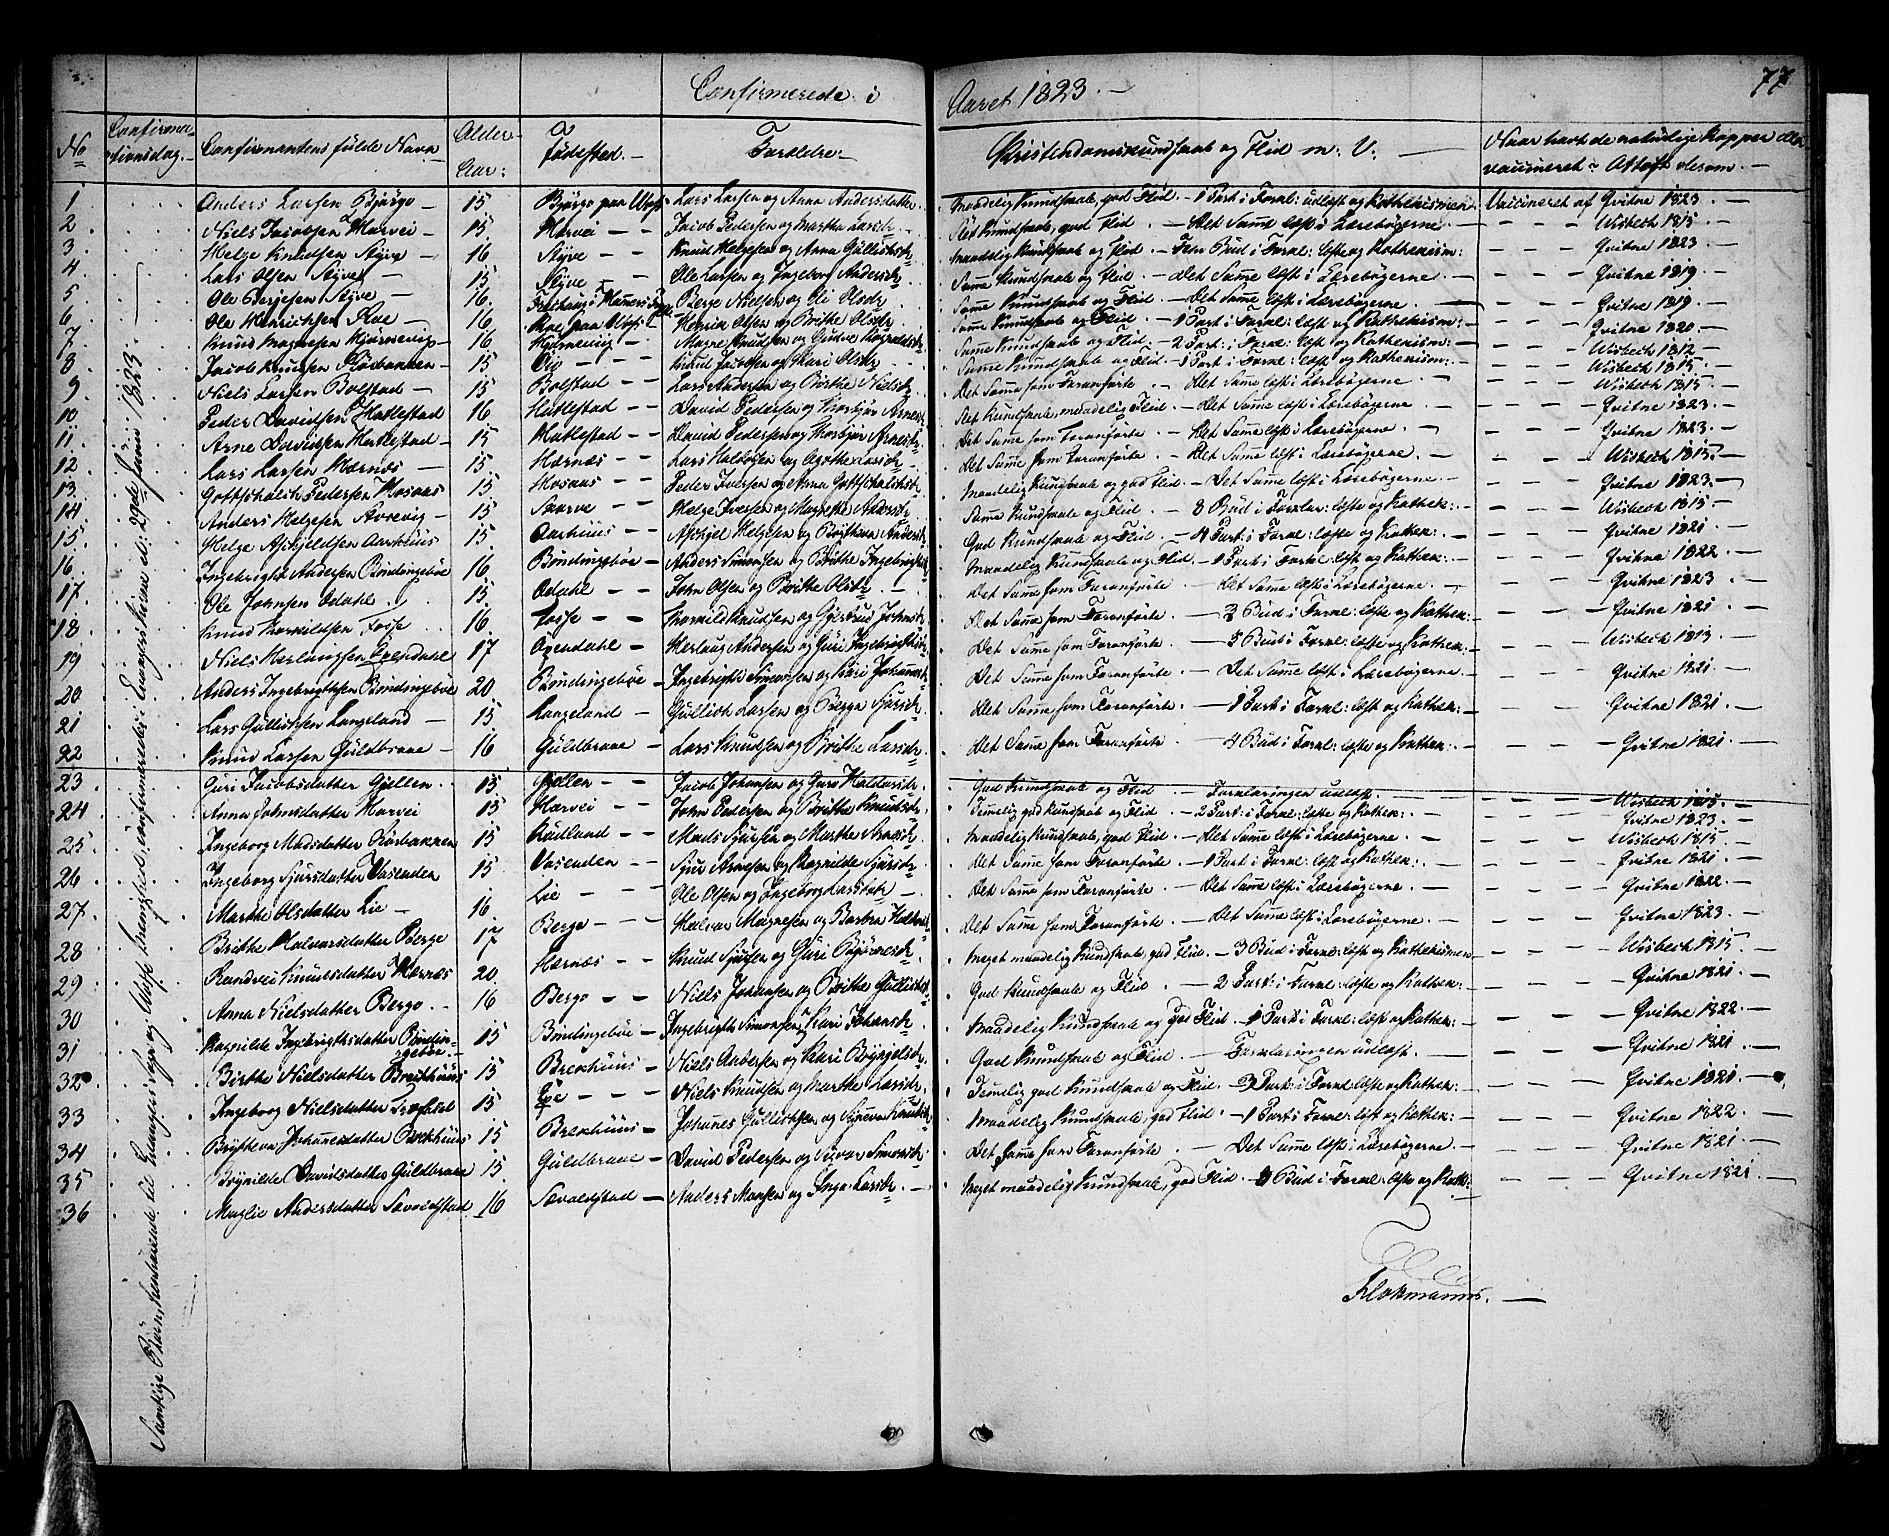 Confirmerede i Aaret 1823. —
77
No Confirmationsdag. Confirmantens fulde Navn Alder Aar: Fødested. Forældre: Kristendomskundskab og Flid m: V: Naar havt de naturlige Kopper eller vaccineret & Attest derom.
Samtlige Børn, henhørende til Evangers Sogn og Præstegield, confirmeredes i Evangers Kirke d: 29de Juni 1823.
1 Anders Larsen Bjørgo 15 Bjørgo paa Woss Lars Larsen og Anna Andersdatter Maadelig Kundskab, god Flid. 1 Part i Forkl: udlæst og Kathekismen Vaccineret af Qvitne 1823.
2 Niels Jacobsen Horvei 15 Horvei Jacob Pedersen og Martha Larsdr Slet Kundskab, god Flid. Det Samme læst i Lærebøgerne. Wisbech 1815.
3 Helge Knudsen Styve 16 Styve Knud Helgesen og Anna Gullichsdr Maadelig Kundskab og Flid. Fem Bud i Forkl: læste og Kathekism: Qvitne 1823.
4 Lars Olsen Styve 15 Styve Ole Larsen og Ingeborg Andersdr Samme Kundskab og Flid. Det Samme læst i Lærebøgerne. Qvitne 1819
5 Ole Berjesen Styve 16. Berge Nielsen og Eli Olsdr Samme Kundskab og Flid. Det Samme læst i Lærebøgerne. Qvitne 1819.
6 Ole Henrichsen Koe 16 Koe paa Woss Henrik Olsen og Brithe Olsdr Samme Kundskab og Flid. 1 Part i Forkl: læst og Kathekism: Qvitne 1820.
7 Knud Magnesen Hjørnevig 16 Hjørnevig Magne Knudsen og Gudve Ragnaldsdr Samme Kundskab og Flid. 2 Part: i Forkl: læst og Kathekism: Wisbech 1812
8 Jacob Knudsen 15 Knud Jacobsen og Kari Olsdr Samme Kundskab og Flid. 1 Part i Forkl: læst og Kathekism: Wisbech 1815.
9 Niels Larsen Bolstad 15 Bolstad Lars Andersen og Brithe Nielsdr Det Samme som Foranførte. Det Samme læst i Lærebøgerne. Wisbech 1815.
10 Peder Davidsen Hatlestad 16 Hatlestad David Pedersen og Thorbjør Arnesdr Slet Kundskab, maadelig Flid. Det Samme læst i Lærebøgerne. Qvitne 1823.
11 Arne Davidsen Hatlestad 15 Hatlestad David Pedersen og Thorbjør Arnesdr Det Samme som Foranførte. Det Samme læst i Lærebøgerne. Qvitne 1823.
12 Lars Larsen Hærnæs 15 Hærnæs Lars Halvorsen og Agathe Larsdr Det Samme som Foranførte. Det Samme læst i Lærebøgerne. Wisbech 1815.
13 Gottschalch Pedersen Mosaas 15 Mosaas Peder Iversen og Anna Gottschalchsdr Maadelig Kundskab og god Flid. Det Samme læst i Lærebøgerne. Qvitne 1823.
14 Anders Helgesen 15 Helge Iversen og Magrethe Andersdr Samme Kundskab og Flid. 3 Bud i Forklar: læste og Kathek: Wisbech 1815
15 Helge Aschjeldsen Aarhuus 15 Aarhuus Aschjel Helgesen og Brithava Andersdr God Kundskab og Flid. 4 Part: i Forkl: læste og Kathek: Qvitne 1821.
16 Ingebrigt Andersen Bondingebøe 16 Bondingebøe Anders Simonsen og Brithe Ingebrigtsdr Maadelig Kundskab og Flid. 1 Part: i Forkl: læst og Kathek: Qvitne 1822.
17 Ole Johnsen Odahl 15 Odahl John Olsen og Brithe Olsdr Det Samme som Foranførte. Det Samme læst i Lærebøgerne. Qvitne 1823
18 Knud Thorkildsen Fosse 16. Fosse Thorkild Knudsen og Gjertrud Johnsdr Det Samme som Foranførte. 3 Bud i Forkl: læste og Kathek: Qvitne 1821
19 Niels Herlaugsen Exendahl 17 Herlaug Andersen og Guri Ingebrigtsdr Det Samme som Foranførte. 5 Bud i Forkl: læste og Kathek: Wisbech 1813.
20 Anders Ingebrigtsen Bondingebøe 20 Bondingebøe Ingebrigt Simonsen og Kari Johannesdr Det Samme som Foranførte. Det Samme læst i Lærebøgerne. Qvitne 1821.
21 Lars Gullichsen Langeland 15 Langeland Gullich Larsen og Børgo Sjursdr Det Samme som Foranførte. 1 Part: i Forkl: læst og Kathek: Qvitne 1821.
22 Knud Larsen Guldbraae 16 Guldbraae Lars Knudsen og Brithe Larsdr Det Samme som Foranførte. 4 Bud i Forkl: læste og Kathek: Qvitne 1821.
23 Guri Jacobsdatter Gjellen 15 Gjellen Jacob Johansen og Guri Haldorsdr God Kundskab og Flid. Forklaringen udlæst. Wisbech 1815.
24 Anna Johnsdatter Horvei 15 Horvei John Pedersen og Brithe Knudsdr Temelig god Kundskab og Flid. 2 Part: i Forkl: læste og Kathek: Qvitne 1823.
25 Ingeborg Madsdatter 15 Mads Sjursen og Marthe Larsdr Maadelig Kundskab, god Flid. Det Samme læst i Lærebøgerne. Wisbech 1815.
26 Ingeborg Sjursdatter Vasenden 15 Vasenden Sjur Arnesen og Ragnilde Sjursdr Det Samme som Foranførte. 1 Part: i Forkl: læst og Kathek: Qvitne 1821.
27 Marthe Olsdatter Lie 16 Lie Ole Olsen og Ingeborg Larsdatr Det Samme som Foranførte. Det Samme læst i Lærebøgerne. Qvitne 1822.
28 Brithe Halvorsdatter Berge 17 Berge Halvor Magnesen og Barbra Det Samme som Foranførte. Det Samme læst i Lærebøgerne. Qvitne 1823.
29 Randvei Knudsdatter Hærnæs 20 Hærnæs Knud Sjursen og Guri Bjørnesdr Meget maadelig Kundskab, god Flid. 3 Bud i Forkl: læste og Kathekismen Wisbech 1815.
30 Anna Nielsdatter Bergo 16 Bergo Niels Johansen og Brithe Gullichsdr God Kundskab og Flid. 2 Part: i Forkl: læste og Kathek: Qvitne 1821.
31 Ragnilde Ingebrigtsdatter Bondingebøe 15 Bondingebøe Ingebrigt Simonsen Kari Johansdr Maadelig Kundskab og god Flid. 1 Part i Forkl: læst og Kathek: Qvitne 1822.
32 Birthe Nielsdatter Brechhuus 15 Brechhuus Niels Andersen og Kari Brynjelsdr God Kundskab og Flid. Forklaringen udlæst. Qvitne 1821.
33 Ingeborg Nielsdatter 15 Niels Knudsen og Marthe Larsdr Temelig god Kundskab og Flid. 3 Part: i Forkl: læst og Kathek: Qvitne 1821.
34 Brythava Johannesdatter Brechhuus 15 Brechhuus Johannes Gullichsen og Synneva Knudsdr Maadelig Kundskab, god Flid. 1 Part: i Forkl: læst og Kathek: Qvitne 1822.
35 Brynilde Davidsdatter Guldbraae 15 Guldbraae David Pedersen og Sivor Simonsdr Det Samme som Foranførte. Det Samme læst i Lærebøgerne. Qvitne 1821.
36 Magli Andersdatter Sævoldstad 16 Sævoldstad Anders Monsen og Inga Larsdr Meget maadelig Kundskab, god Flid. 3 Bud i Forkl: læste og Kath: Qvitne 1821.